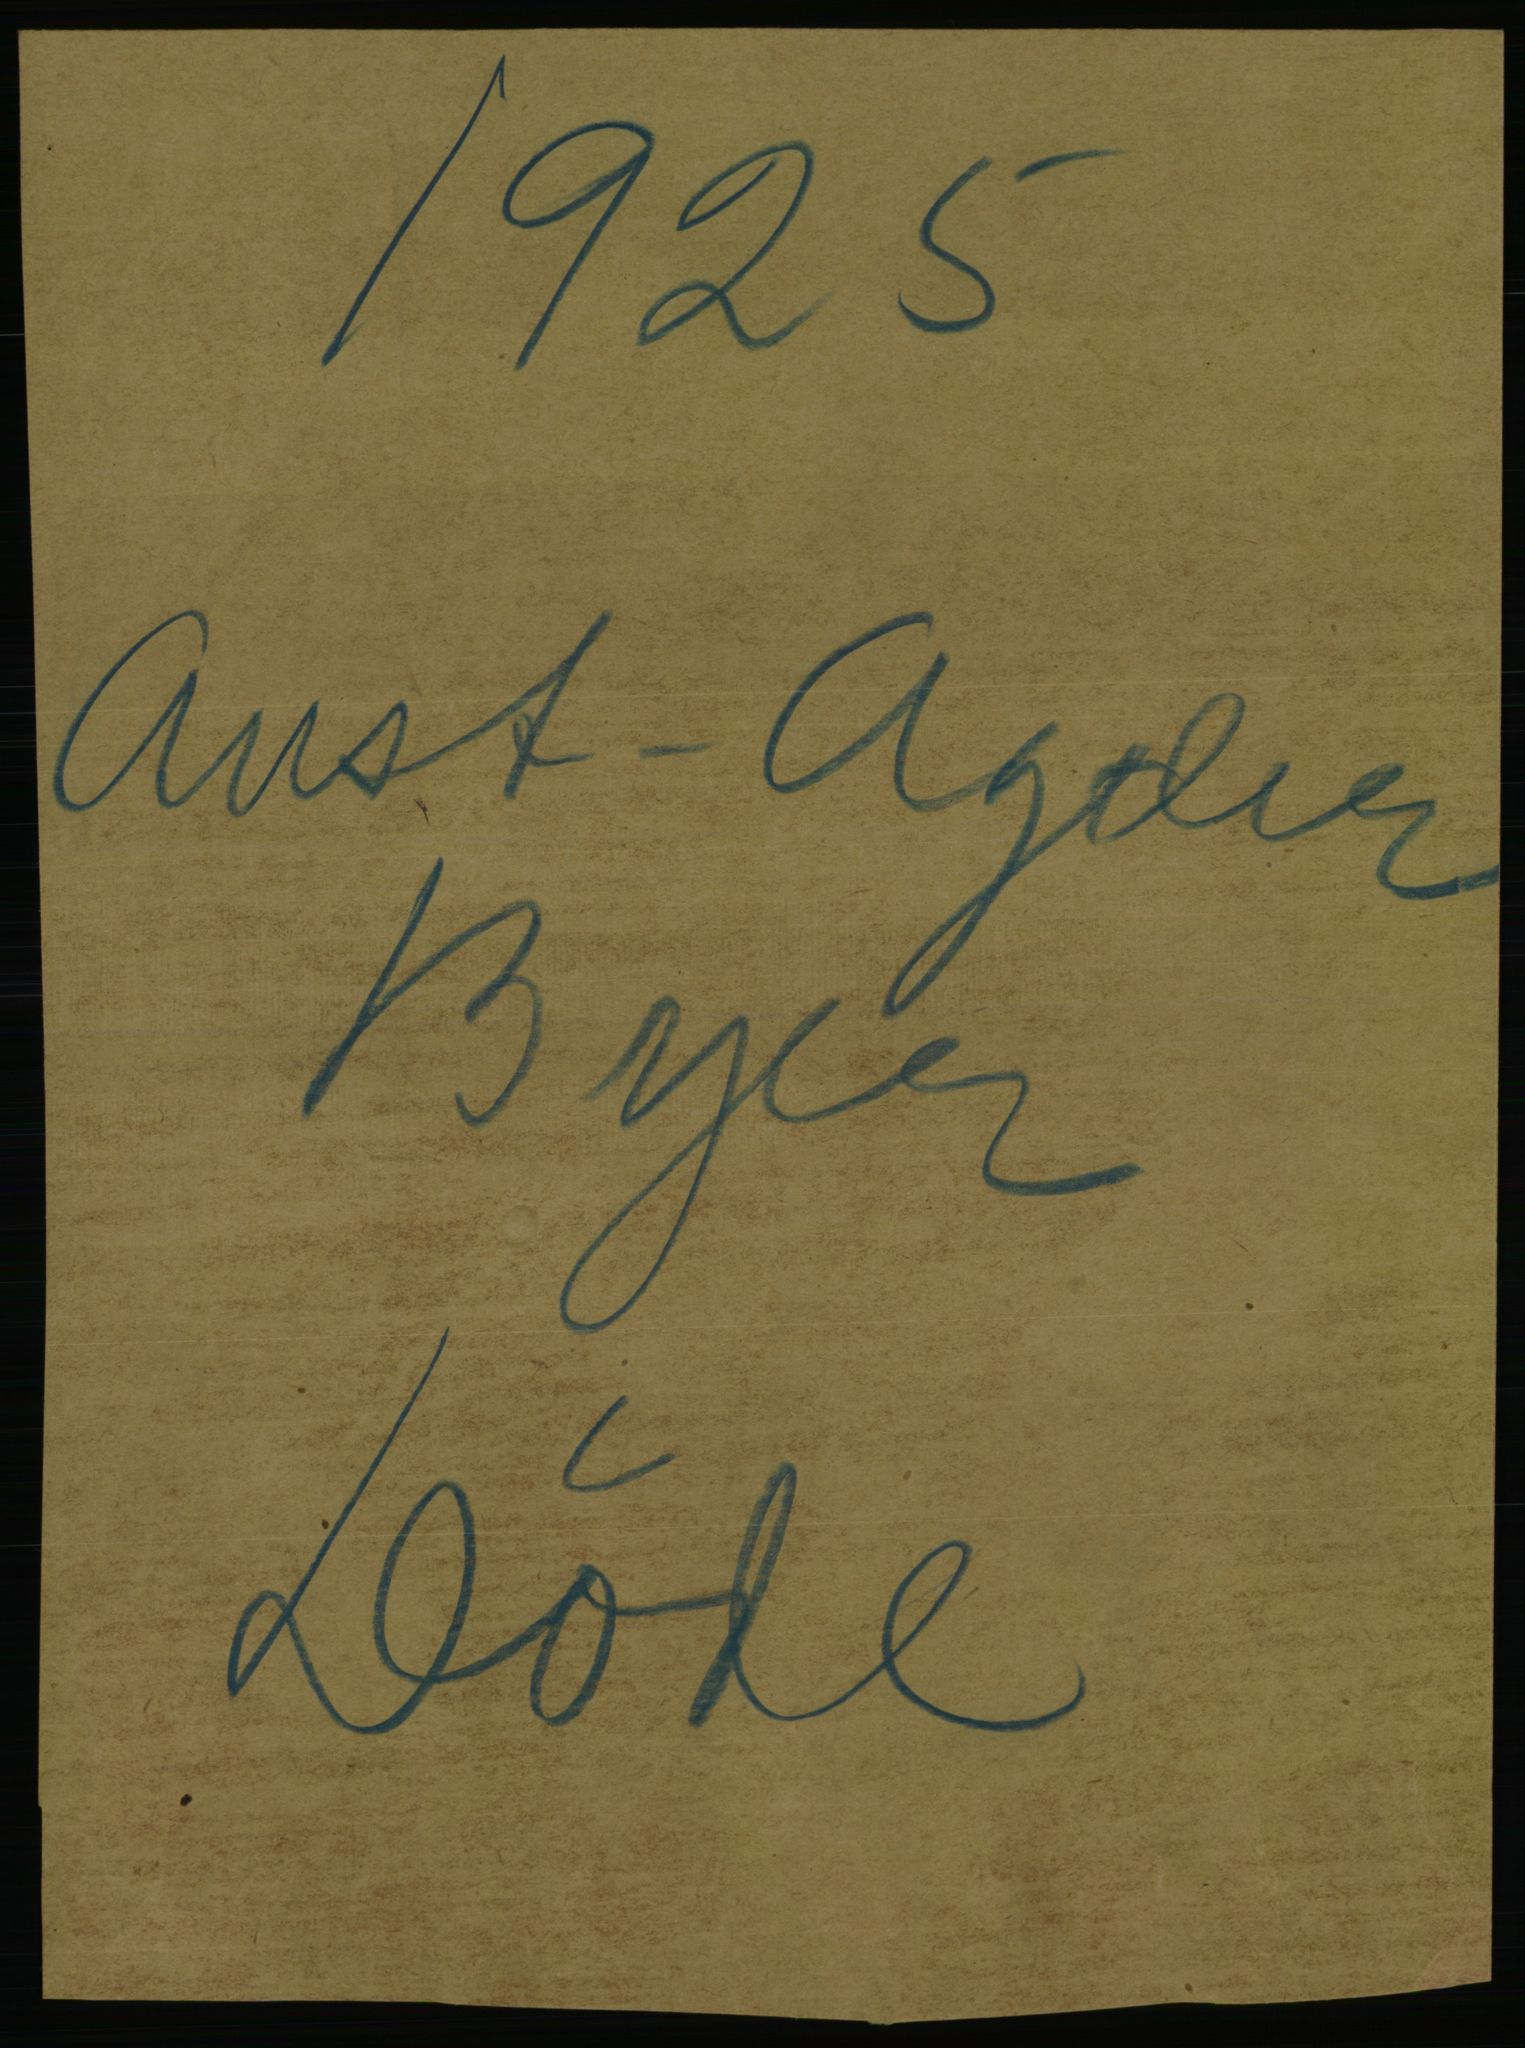 1925
Aust-Agder
Byer
Döde